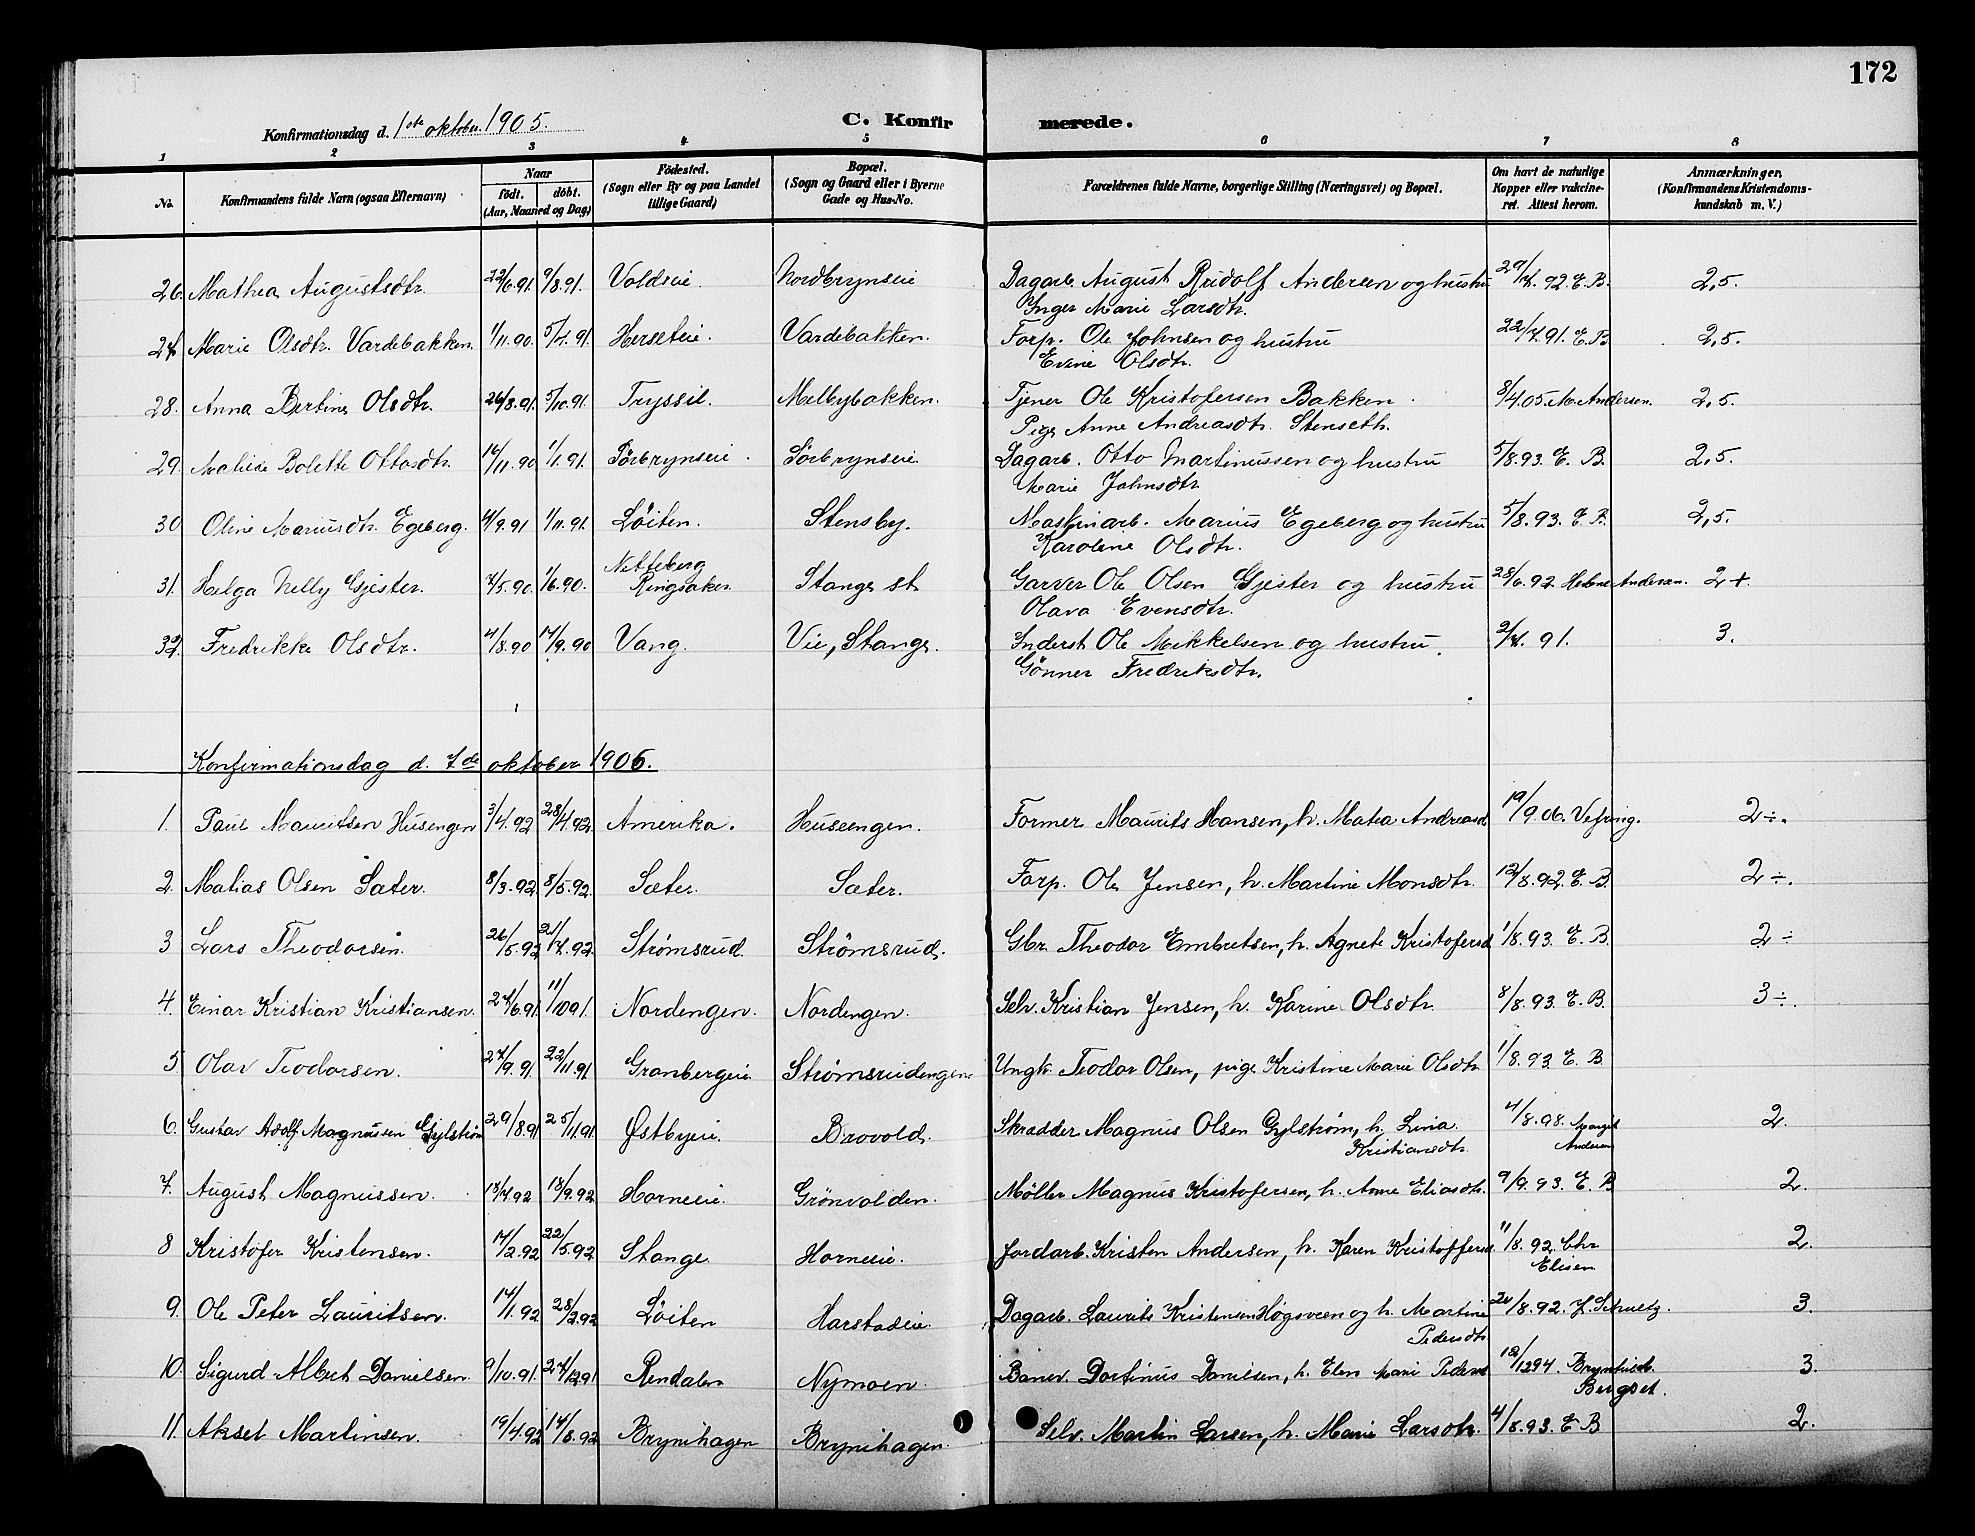 172
Konfirmationsdag d. 1ste oktober 1905.
C. Konfirmerede.
1 2 3 4 5 6 7 8
No.
Konfirmandens fulde Navn (ogsaa Efternavn)
Naar
født. døbt.
(Aar, Maaned og Dag)
Födested.
(Sogn eller By og paa Landet
tillige Gaard)
Bopæl.
(Sogn og Gaard eller i Byerne
Gade og Hus-No.
Forældrenes fulde Navne, borgerlige Stilling (Næringsvei) og Bopæl.
Om havt de naturlige
Kopper eller vakcine-
ret. Attest herom.
Anmærkninger.
(Konfirmandens Kristendoms-
kundskab m. V.)
26. Mathea Augustsdtr. 22/6.91. 9/8.91. Voldseie. Nordbrynseie Dagarb. August Rudolf Andersen og hustru 29/7.92. E.B. 2,5.
Inger Marie Larsdtr.
27. Marie Olsdtr. Vardebakken. 1/11.90. 5/7.91. Herseteie. Vardebakken. Forp. Ole Johnsen og hustru 22/7.91. E.B 2,5.
Evine Olsdtr.
28. Anna Bertine Olsdtr. 26/8.91. 5/10.91. Tryssil. Melbybakken. Tjener Ole Kristofersen Bakken. 8/4.05. M. Andersen. 2,5.
Pige Anne Andreasdtr. Stenseth.
29. Bolette Ottosdtr. 16/11.90 1/1.91. Sörbrynseie. Sörbrynseie. Dagarb. Otto Martinussen og hustru 5/8.93. E. B. 2,5.
Marie Johnsdtr.
30 Oline Mariusdtr. Egeberg. 4/9.91 1/11.91. Löiten. Stensby. Maskinarb. Marius Egeberg og hustru 5/8.93. E. B. 2,5.
Karoline Olsdtr.
31. Helga Nelly Gjester. 7/5.90. 1/6.90. Netteberg
Ringsaker. Stange st. Garver Ole Olsen Gjester og hustru 28/6.92 Helene Andersen. 2+.
Olava Evensdtr.
32. Fredrikke Olsdtr. 4/8.90 14/9.90 Vang. Vie, Stange. Inderst Ole Mikkelsen og hustru. 2/7.91. 3.
Gönner Fredriksdtr.
Konfirmationsdag d. 7de oktober 1906.
1. Paul Mauritsen Husengen 3/4.92 28/4.92. Amerika. Huseengen. Former Maurits Hansen, h. Matea Andreasd 19/9.06. Vefring. 2÷.
2. Matias Olsen Sæter. 8/3.92. 8/5.92. Sæter. Sæter. Forp. Ole Jensen, h. Martine Monsdtr. 12/8.92. E. B. 2÷.
3 Lars Theodorsen. 26/5.92 21/7.92. Strömsrud. Strömsrud. Gbr. Theodor Embretsen, h. Agnete Kristofersd 1/8.93. E. B. 2÷
4. Einar Kristian Kristiansen. 27/6.91. 11/1091. Nordengen. Nordengen. Selv. Kristian Jensen, h. Karine Olsdtr. 8/8.93. E. B. 3÷.
5 Olav Teodorsen. 27/9.91. 22/11.91. Granbergeie. Strömsrudengen Ungk. Teodor Olsen, pige Kristine Marie Olsdtr 1/8.93. E. B.
6. Gustav Adolf Magnusen Gylström 29/8.91 25/11.91. Östbyeie. Brovold. Skrædder Magnus Olsen Gylström, h. Lina 4/8.98. Margit 2.
Kristiansdtr. Andersen
7. August Magnussen. 18/7.92 18/9.92. Horneeie. Grönvolden. Møller Magnus Kristofersen, h. Anne Eliasdtr. 9/9.93. E. B 2.
8 Kristofer Kristensen. 14/2.92. 22/5.92. Stange. Horneeie. Jordarb. Kristen Andersen, h. Karen Kristoffersd 11/8.92. Chr 2.
Elisen
9. Ole Peter Lauritsen. 14/1.92. 28/2.92 Löiten Harstadeie. Dagarb. Laurits Kristensen Høgsveen og h. Martine 20/8.92. J. Schultz. 3.
Pedersdtr
10. Sigurd Albert Danielsen. 9/10.91. 27/12.91 Rendalen Nymoen. Banev. Dortinus Danielsen, h. Elen Marie Pedersd 18/1294. Brynhild 3.
Bergset.
11. Aksel Martinsen. 19/4.92 14/8.92 Brynihagen Brynihagen. Selv. Martin Larsen, h. Marie Larsdtr. 4/8.93. E B 2.